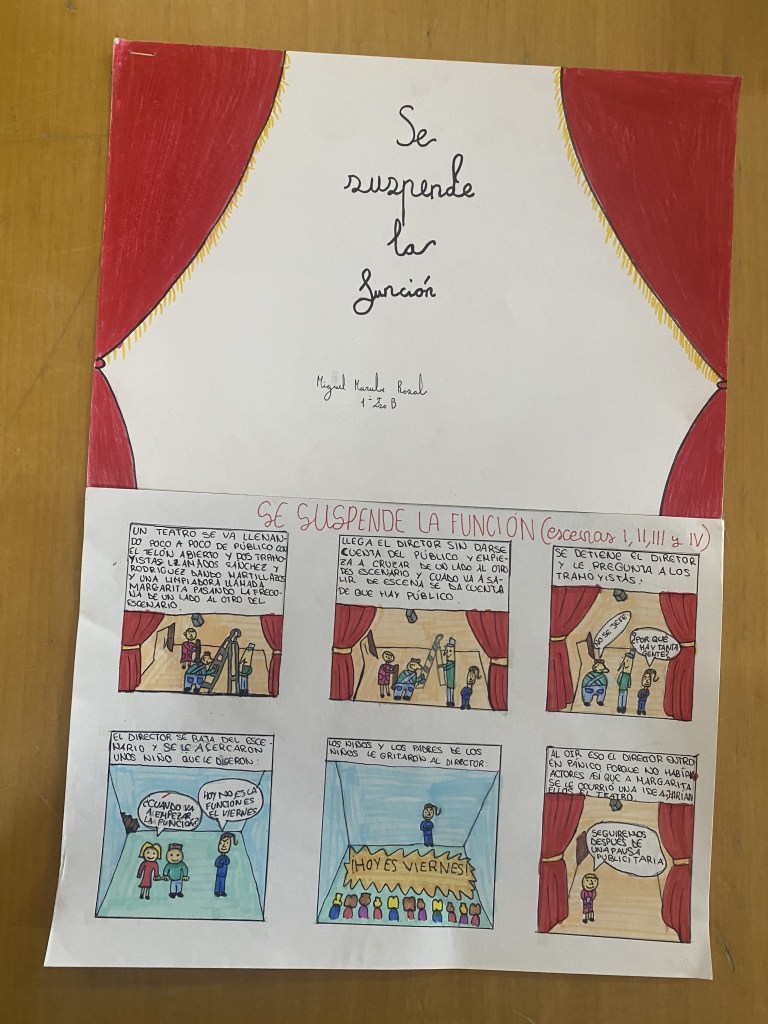 Se
suspende
la
función
Miguel
1º Eso B
SE SUSPENDE LA FUNCIÓN (escenas I, II, III y IV)
UN TEATRO SE VA LLENAN-
DO POCO A POCO DE PÚBLICO CON
EL TELÓN ABIERTO Y DOS TRAMO-
YISTAS LLAMADOS SÁNCHEZ Y
RODRIGUEZ DANDO MARTILLAZOS
Y UNA LIMPIADORA LLAMADA
MARGARITA PASANDO LA FREGO-
NA DE UN LADO AL OTRO DEL
ESCENARIO.
LLEGA EL DIRCTOR SIN DARSE
CUENTA DEL PÚBLICO Y EMPIE-
ZA A CRUZAR DE UN LADO AL OTRO
DES ESCENARIO Y CUADO VA A SA-
LIR DE ESCENA SE DA CUENTA
DE QUE HAY PÚBLICO.
SE DETIENE EL DIRETOR
Y LE PREGUNTA A LOS
TRAMOYISTAS:
NO SE JEFE
¿POR QUÉ
HAY TANTA
GENTE?
EL DIRECTOR SE BAJA DEL ESCE-
NARIO Y SE LE ACERCARON
UNOS NIÑO QUE LE DIJERON:
¿CUANDO VA
A EMPEZAR
LA FUNCIÓN?
HOY NO ES LA
FUNCION ES
EL VIERNES
LOS NIÑOS Y LOS PADRES DE LOS
NIÑOS LE GRITARON AL DIRECTOR:
¡HOY ES VIERNES!
AL OIR ESO EL DIRECTOR ENTRO
EN PÁNICO PORQUE NO HABÍAN
ACTORES ASI QUE A MARGARITA
SE LE OCURRIÓ UNA IDEA, HARÍAN
ELLOS EL TEATRO
SEGUIREMOS
DESPUES DE
UNA PAUSA
PUBLICITARIA